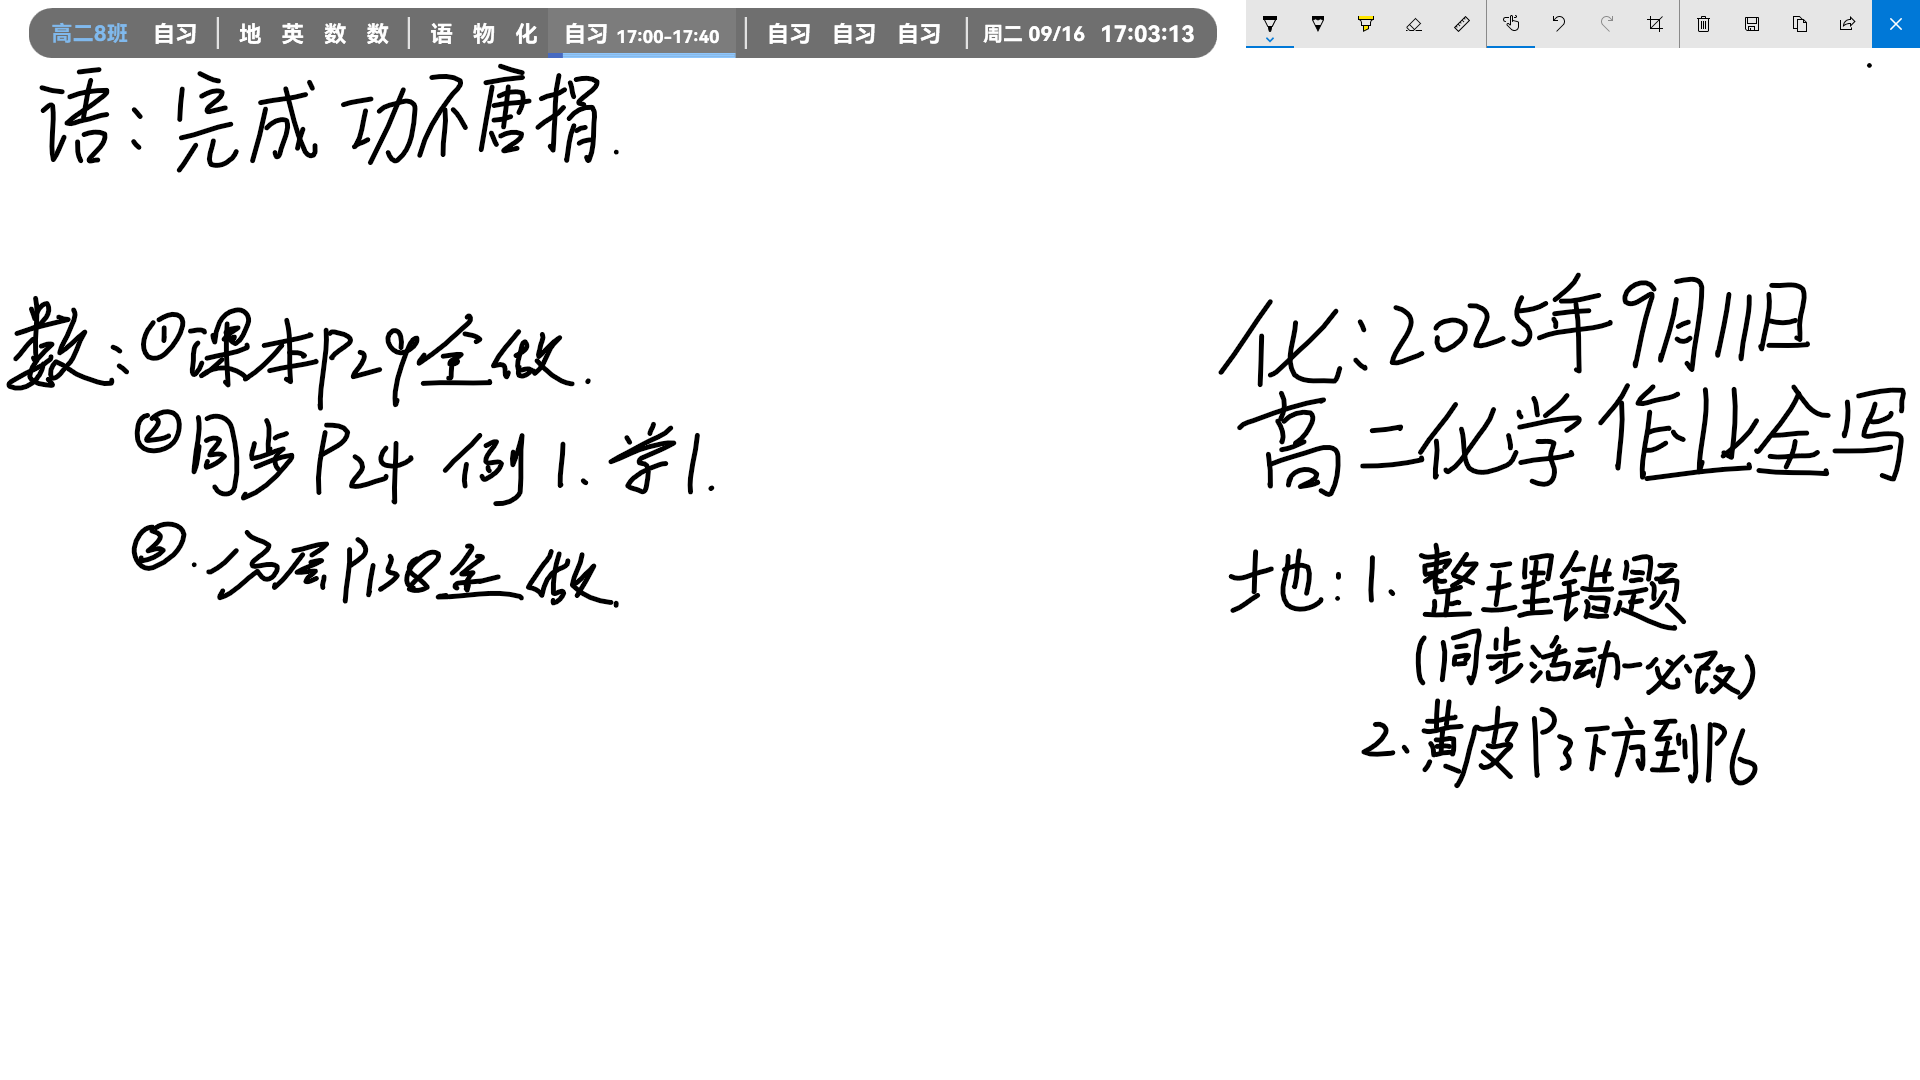 高二8班 自习 | 地 英 数 数 | 语 物 化 自习 17:00-17:40 | 自习 自习 自习 | 周二 09/16 17:03:13
语：完成功不唐捐.
数：①课本P29全做.
②同步P24 例1、学1.
③.分层P138全做.
化：2025年9月11日
高二化学作业全写
地：1.整理错题
(同步活动一必改)
2.黄皮P3下方到P6